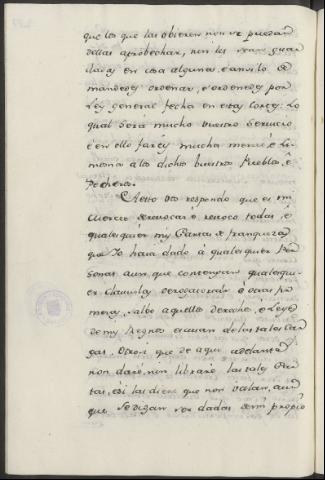 que los que las obieren non se puedan
dellas aprobechar, nin les sean guar
dadas en cosa alguna: é ansi lo
mandedes ordenar, é ordenedes por
Ley general fecha en estas Cortes: Lo
qual será mucho vuestro servicio
é en ello faréis mucha merced, é Li
mosna a los dichos vuestros Pueblos, é
Pecheros.
A esto vos respondo que es mi
Merced de revocar é revoco todas, é
qualesquier mis Cartas de franqueza
que Yo haia dado á qualesquier Per
sonas aunque contengan qualesqui
er clausulas derogatorias é otras pri
meras, salvo aquellos
de mis Regnos escusan de los tales Car
gos. Otrosi que de aqui adelante
non daré, nin libraré las tales Car
tas, é si las diere que non valan, aun
que se digan ser dadas de mi propio